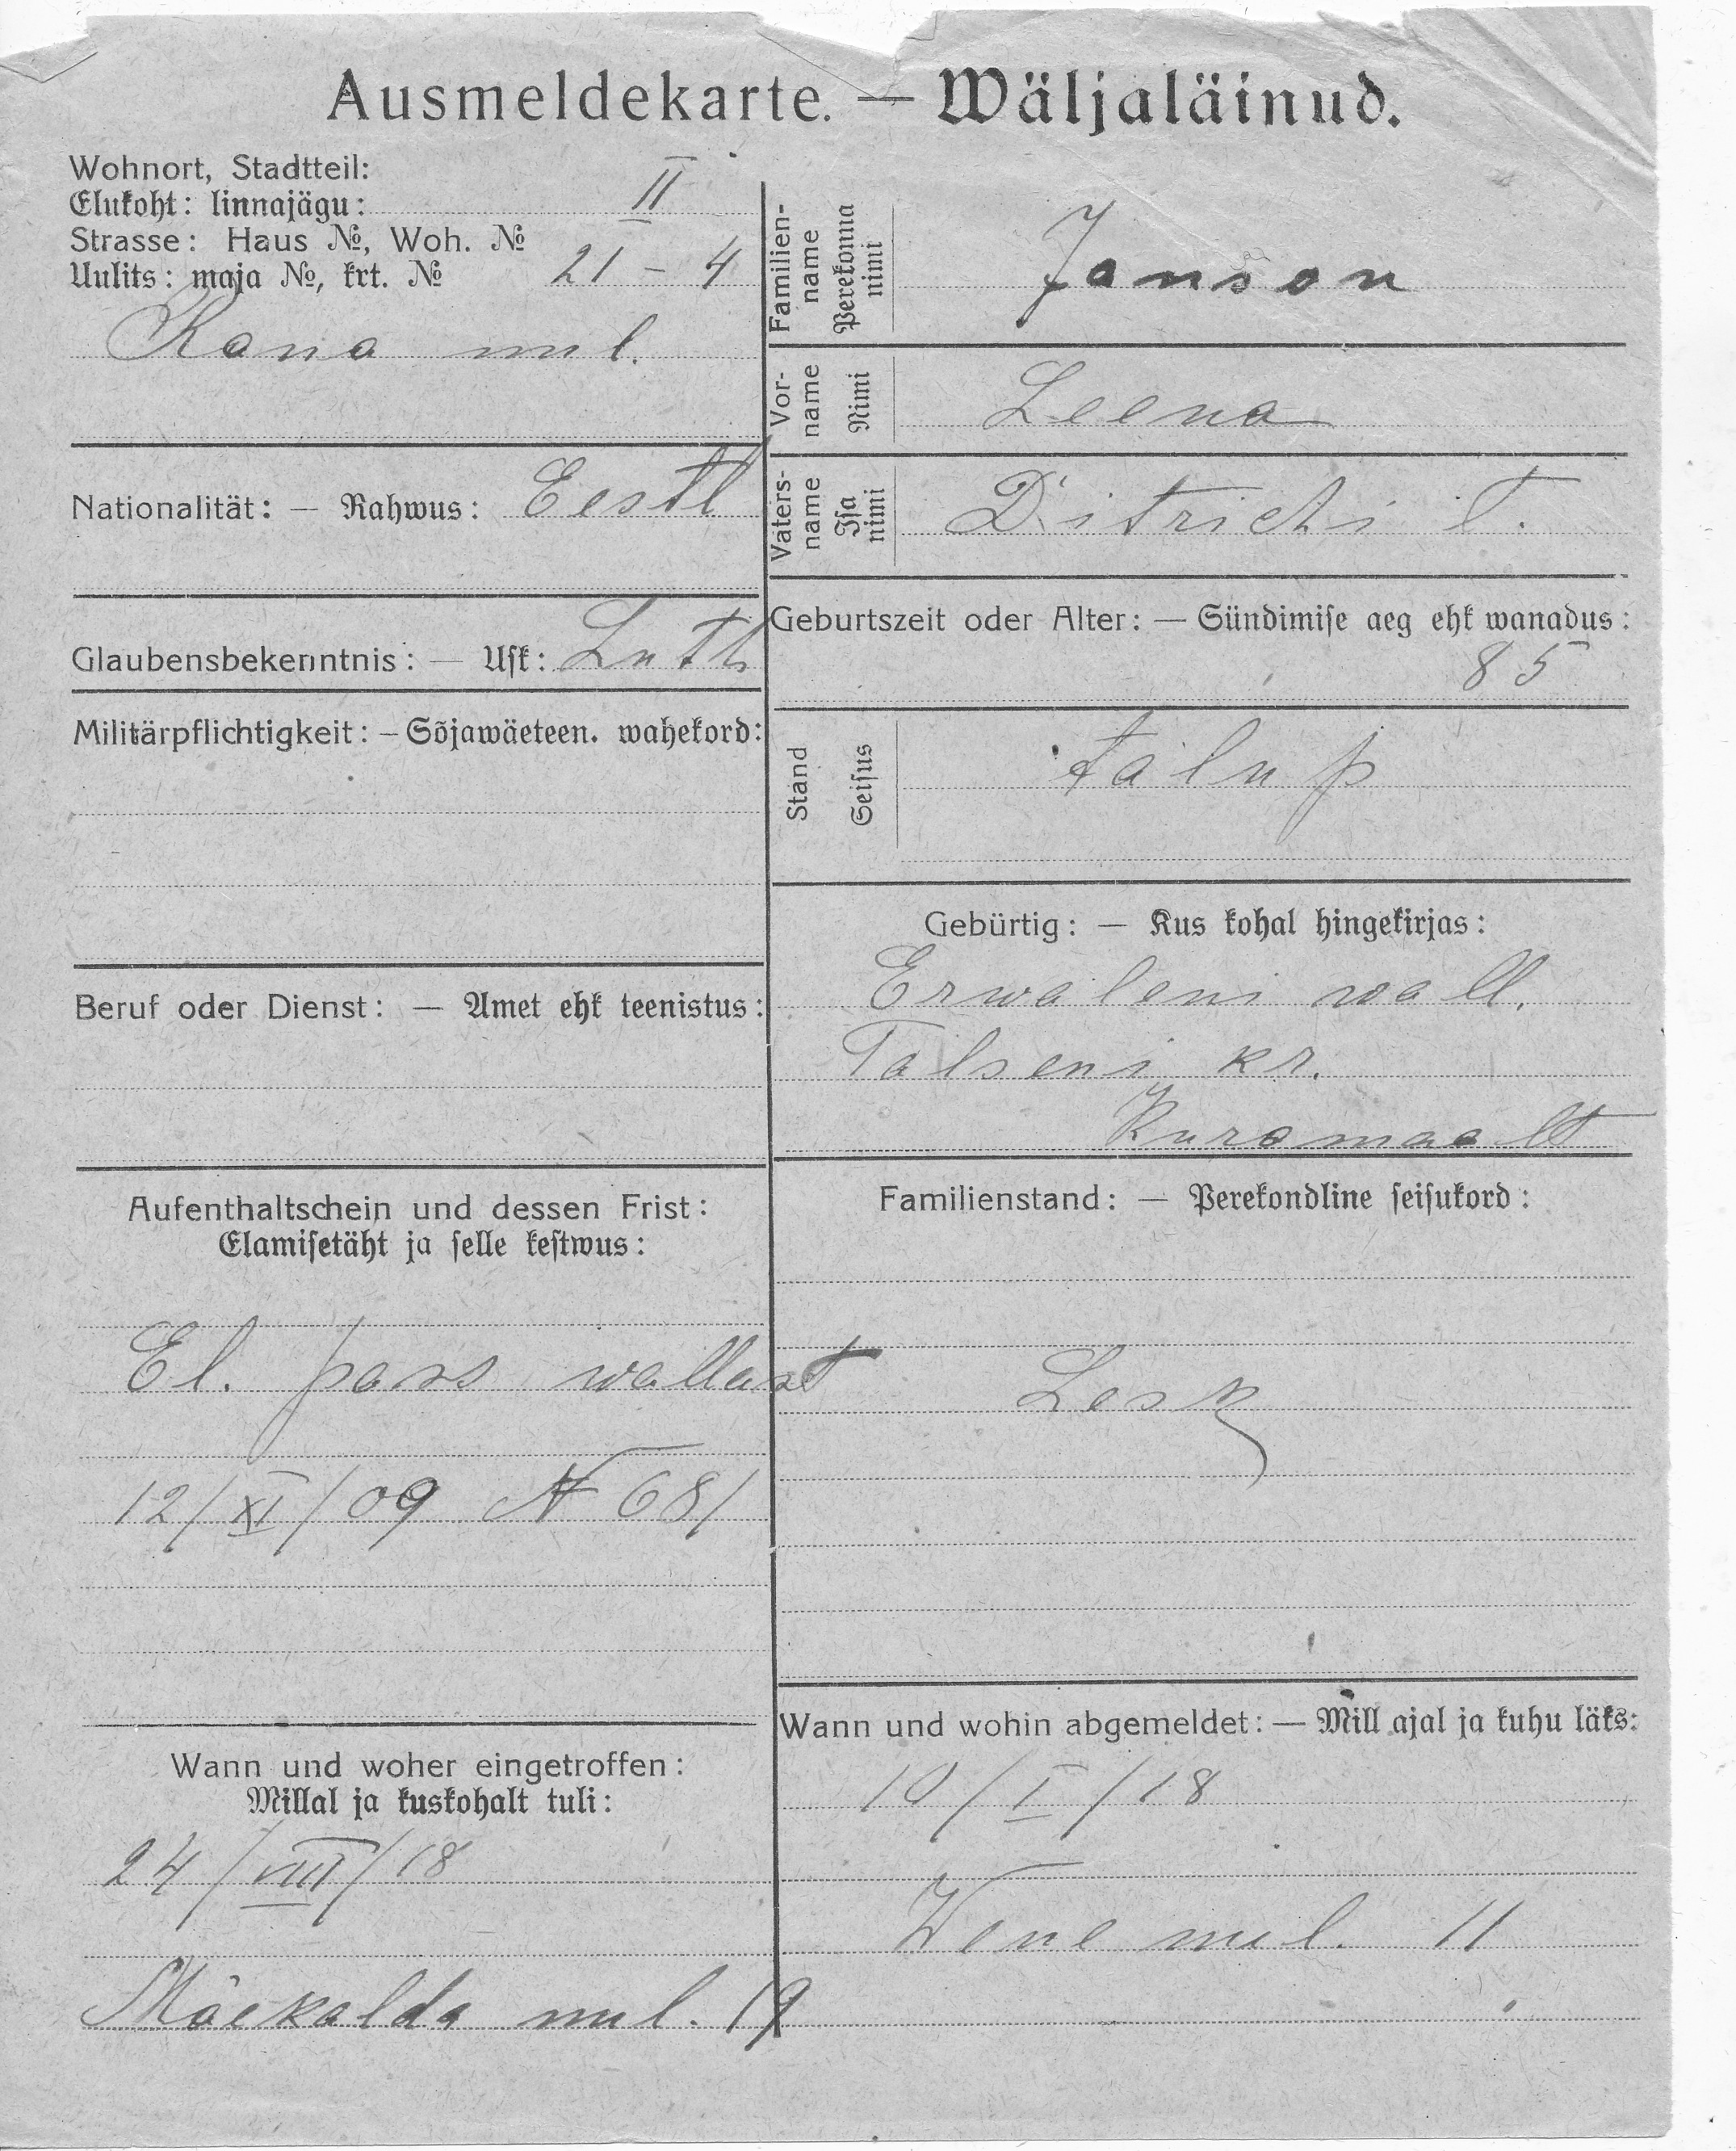 Ausmeldekarte. — Wäljaläinud.
Wohnort, Stadtteil:
Elukoht: linnajägu: II
Strasse: Haus №, Woh. №
Uulits: maja №, krt. № 21 – 4
Kana uul.
Nationalität: — Rahwus: Eestl
Glaubensbekenntnis: — Usk: Luth
Militärpflichtigkeit: – Sõjawäeteen. wahekord:
Beruf oder Dienst: — Amet ehk teenistus:
Aufenthaltschein und dessen Frist:
Elamisetäht ja selle kestwus:
El. pass wallast
12/XI/09 N 681
Wann und woher eingetroffen:
Millal ja kuskohalt tuli:
24/VIII/18
Mäekalda uul. 19
Familien-
name
Perekonna
nimi
Janson
Vor-
name
Nimi
Leena
Vaters-
name
Isa
nimi
Ditrichi t.
Geburtszeit oder Alter: — Sündimise aeg ehk wanadus:
85
Stand
Seisus
talup
Gebürtig: — Kus kohal hingekirjas:
Erwaleni wall.
Talseni kr.
Kuramaalt
Familienstand: — Perekondline seisukord:
Lesk
Wann und wohin abgemeldet: — Mill ajal ja kuhu läks:
10/I/18
Wene uul. 11